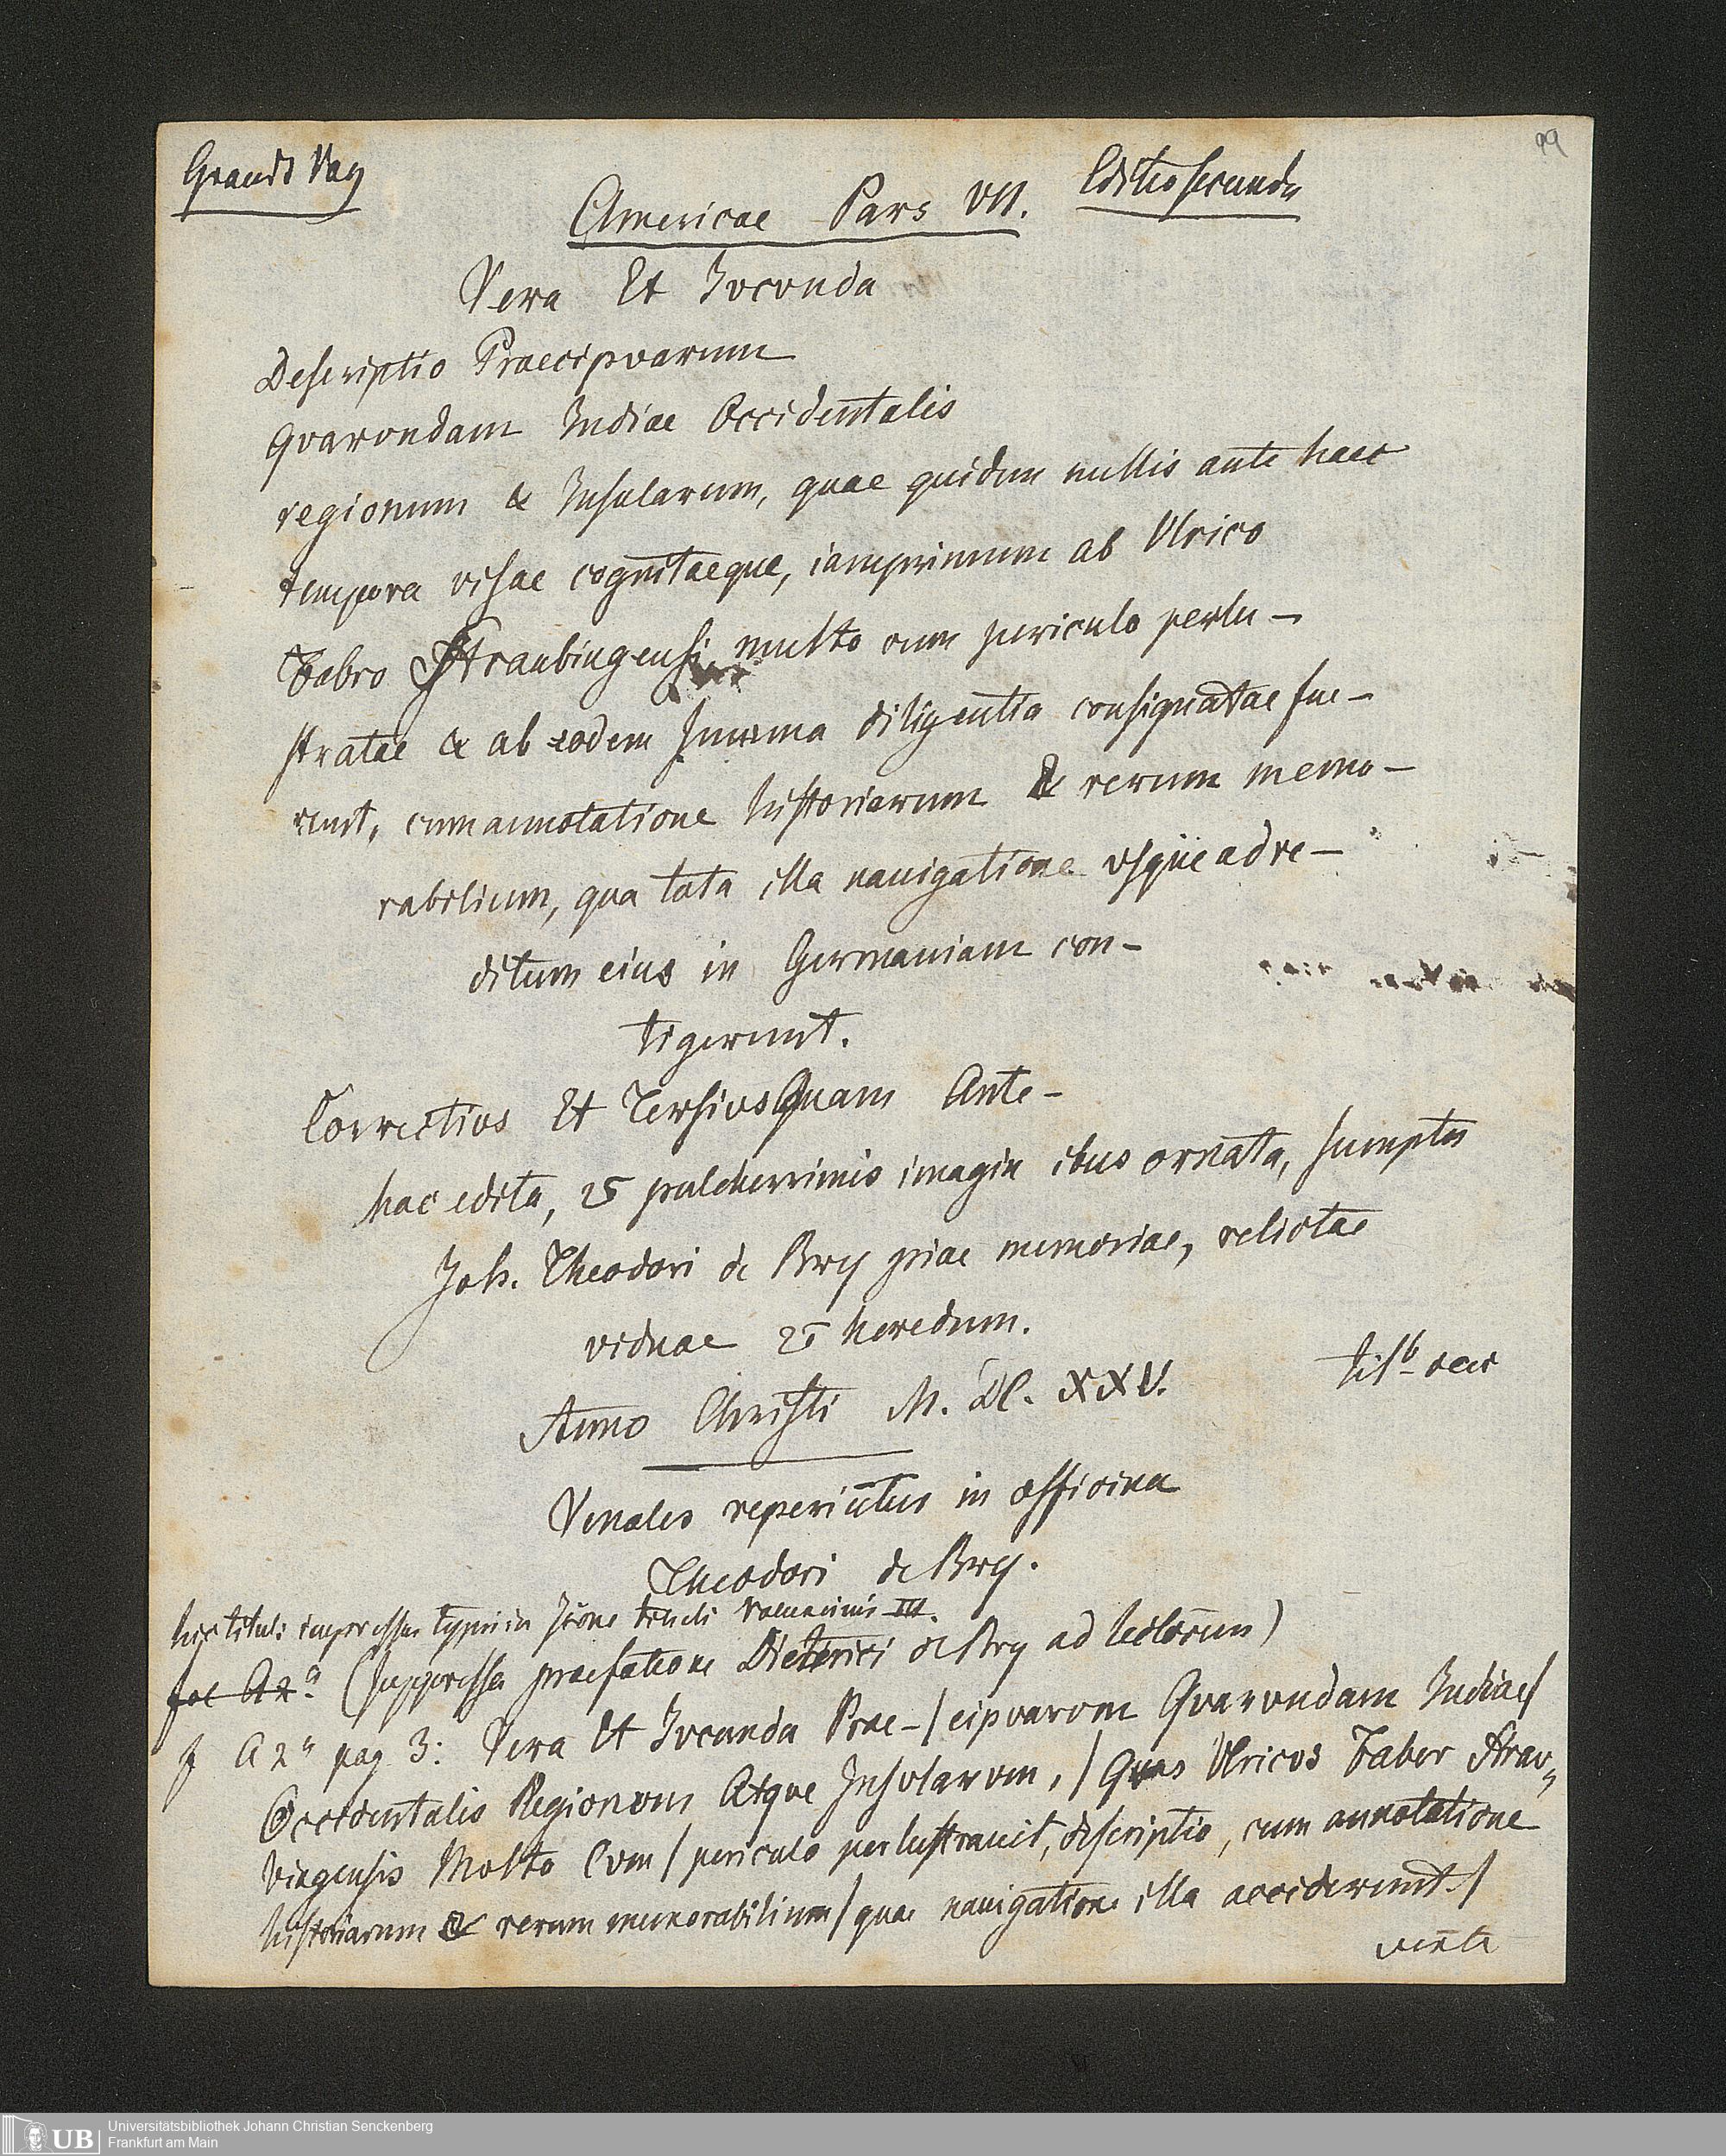 99
Grands Voy
Editio secunda
Americae Pars VII.
Vera Et Jvcvnda
Descriptio Praecipvarum
Qvarvndam Indiae Occidentalis
regionum & Insularum, quae quidem nullis ante haec
tempora visae cognitaeque, iamprimum ab Vlrico
Fabro Straubingensi multo cum periculo perlu-
stratae & ab eodem summa diligentia consignatae fue-
runt, cum annotatione historiarum & rerum memo-
rabilium, qua tota illa nauigatione vsque ad re-
ditum eius in Germaniam con-
tigerunt.
Correctivs Et Tersivs Quam Ante-
hac edita, & pulcherrimis imaginibus ornata, sumptu
Joh. Theodori de Bry piae memoriae, relictae
viduae & heredum.
Anno Christi M. DC. XXV.
Venales reperiūtur in officina
Theodori de Bry.
hic tituli impressa typis in Icone tituli Voluminis III.
fol A2a (suppressa praefatione Dieterici de Bry ad lectorem)
f A2a pag 3: Vera Et Jvcunda Prae-/cipvarvm Qvarvndam Indiae/
Occidentalis Regionvm Atqve Insvlarvm, / Qvas Vlricvs Faber Strav-
bingensis Mvlto Cvm / periculo perlustrauit, descriptio, cum annotatione
historiarum & rerum memorabilium / quae nauigatione illa acciderunt./
verte
Universitätsbibliothek Johann Christian Senckenberg
Frankfurt am Main
UB